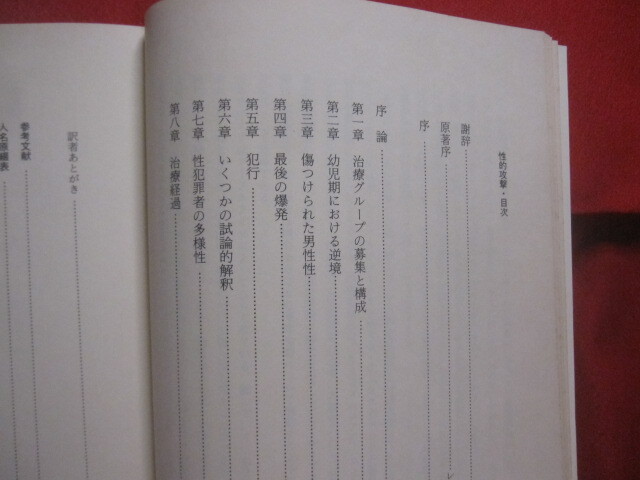 性的攻撃・目次
謝辞
原著序
序
序 論
第一章 治療グループの募集と構成
第二章 幼児期における逆境
第三章 傷つけられた男性性
第四章 最後の爆発
第五章 犯行
第六章 いくつかの試論的解釈
第七章 性犯罪者の多様性
第八章 治療経過
訳者あとがき
参考文献